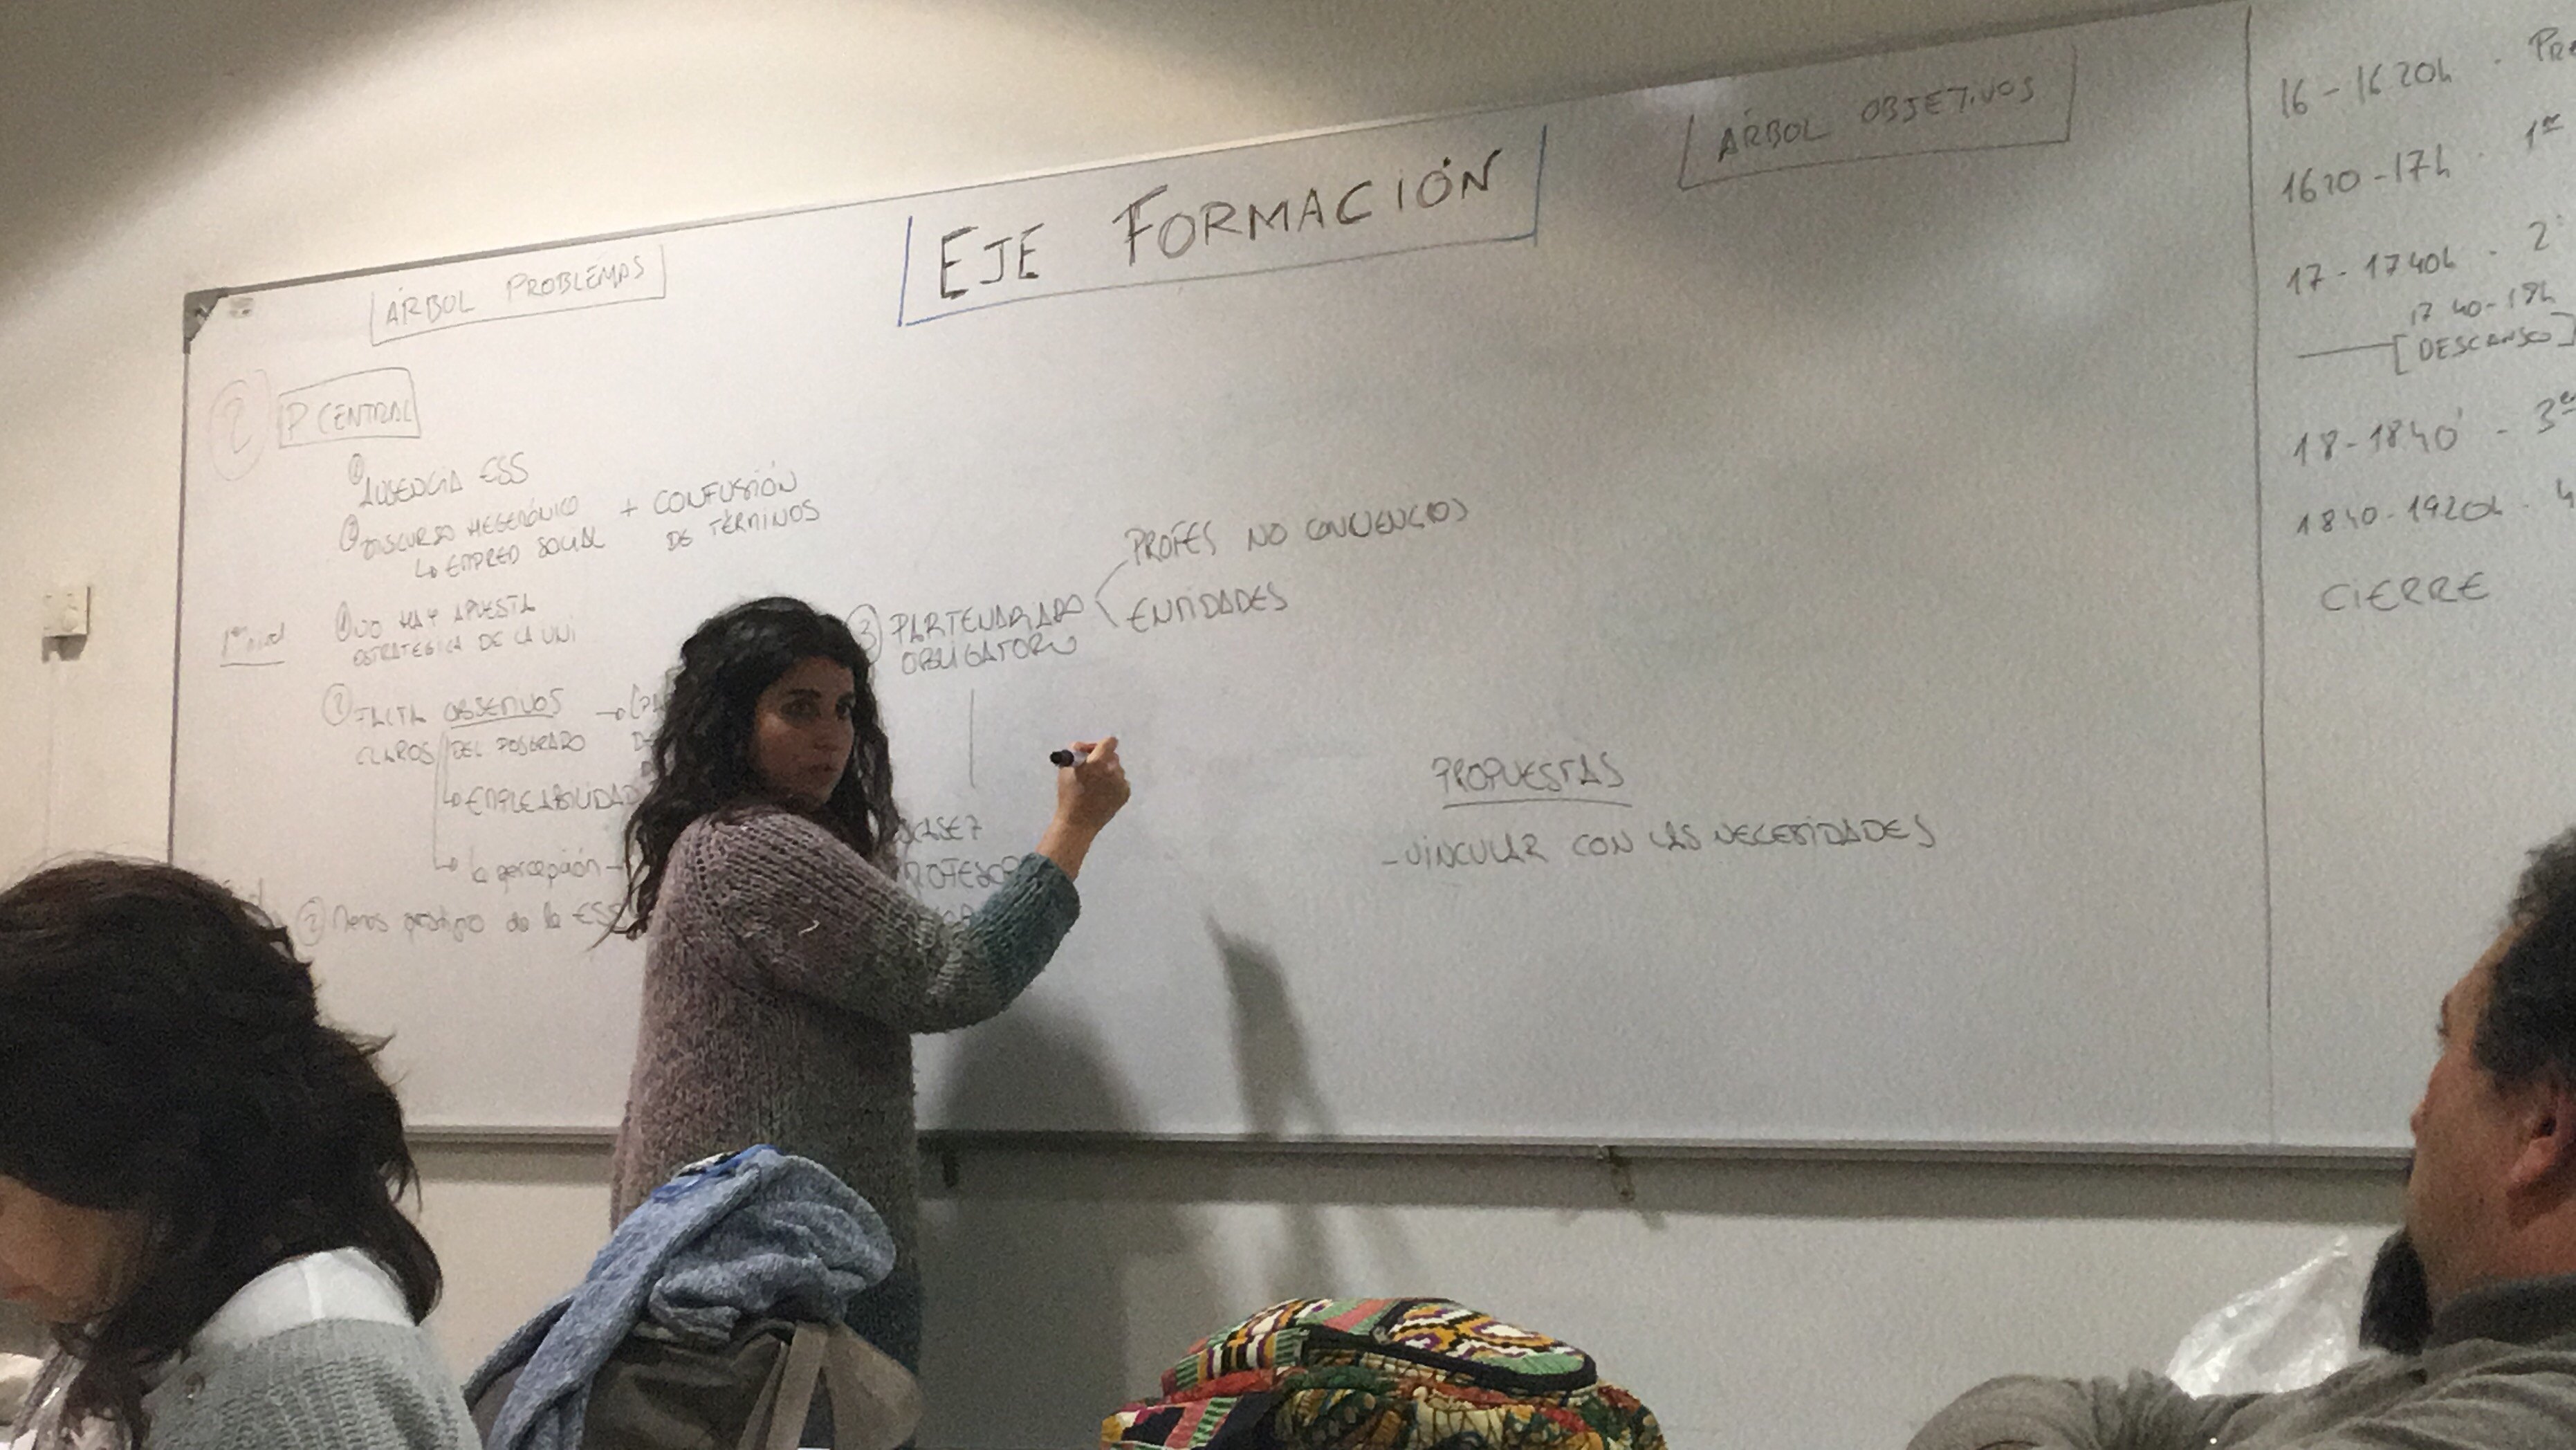 EJE FORMACIÓN
ÁRBOL PROBLEMAS
ÁRBOL OBJETIVOS
2 P CENTRAL
1 AUSENCIA ESS
2 DISCURSO HEGEMÓNICO + CONFUSIÓN
↳ EMPRED SOCIAL DE TÉRMINOS
1 NO HAY APUESTA
ESTRATEGICA DE LA UNI
FALTA OBJETIVOS → (
CLAROS DEL POSGRADO
↳ EMPLEABILIDAD
↳ la percepción -
2 Menos prestigio de la ESS
3 PARTENARIADO
OBLIGATORIO
PROFES NO CONVENCIDOS
ENTIDADES
PROPUESTAS
- VINCULAR CON LAS NECESIDADES
16 - 16 20h ·
1620 - 17h ·
17 - 1740h - 2
17 40 - 18h
[DESCANSO]
18 - 1840' - 3er
1840 - 1920h - 4
CIERRE